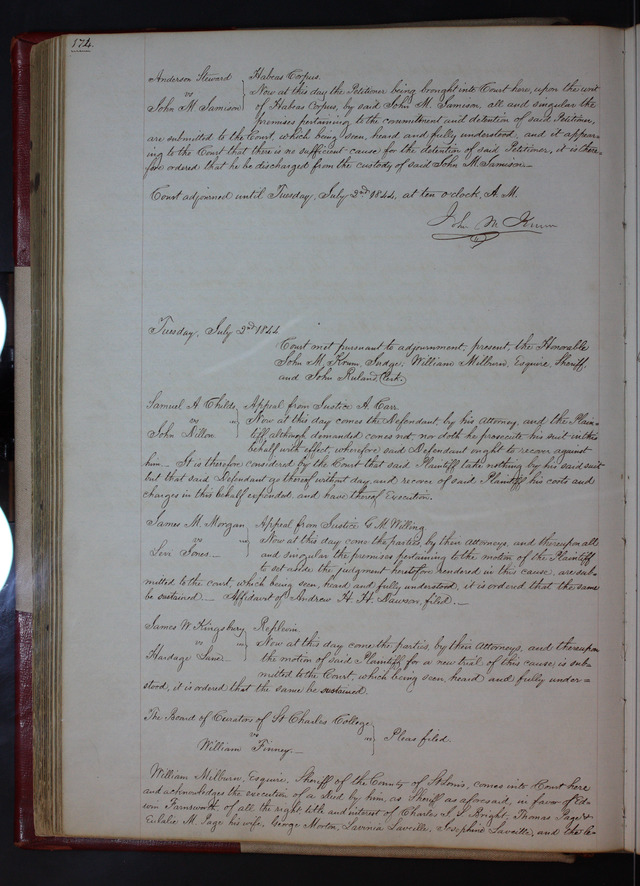 174.
Anderson Steward } Habeas Corpus.
vs } Now at this day the Petitioner being brought into Court here, upon the writ
John M Jamison } of Habeas Corpus, by said John M. Jamison, all and singular the
premises pertaining to the commitment and detention of said Petitioner,
are submitted to the Court, which being seen, heard and fully understood, and it appear-
ing to the Court that there is no sufficient cause for the detention of said Petitioner, it is there-
fore ordered that he be discharged from the custody of said John M. Jamison—
Court adjourned until Tuesday, July 2nd 1844, at ten o'clock, A. M.
John M. Krum
Tuesday, July 2nd 1844
Court met pursuant to adjournment, present, the Honorable
John M. Krum, Judge, William Milburn, Esquire, Sheriff,
and John Ruland, Clerk.
Samuel A Childs } Appeal from Justice A. Carr.
vs } Now at this day comes the Defendant, by his attorney, and the Plain-
John Dillon } tiff although demanded comes not, nor doth he prosecute his suit in this
behalf with effect, wherefore said Defendant ought to recover against
him— It is therefore considered by the Court that said Plaintiff take nothing by his said suit
but that said Defendant go thereof without day, and recover of said Plaintiff his costs and
charges in this behalf expended, and have thereof Execution.
James M. Morgan } Appeal from Justice G. M. Willing
vs } Now at this day come the parties, by their attorneys, and thereupon all
Levi Jones.— } and singular the premises pertaining to the motion of the Plaintiff
to set aside the judgment heretofore rendered in this cause, are sub-
mitted to the court, which being seen, heard and fully understood, it is ordered that the same
be sustained.— Affidavit of Andrew H. H. Dawson, filed.—
James W Kingsbury } Replevin
vs } Now at this day come the parties, by their attorneys, and thereupon
Hardage Lane— } the motion of said Plaintiff for a new trial of this cause, is sub-
mitted to the Court, which being seen, heard and fully under=
stood, it is ordered that the same be sustained.
The Board of Curators of St Charles College }
vs } Pleas filed.
William Finney.— }
William Milburn, Esquire, Sheriff of the County of St Louis, comes into Court here
and acknowledges the execution of a Deed by him, as Sheriff as aforesaid, in favor of Ed-
win Farnsworth of all the right, title and interest of Charles S. L. Bright, Thomas Page &
Eulalie M. Page his wife, George Morton, Lavinia Laveille, Josephine Laveille, and the le